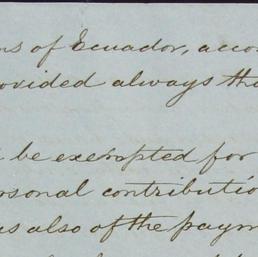 ns of Ecuador, acco
rovided always tha
be exempted for
ersonal contributio
us also of the paym